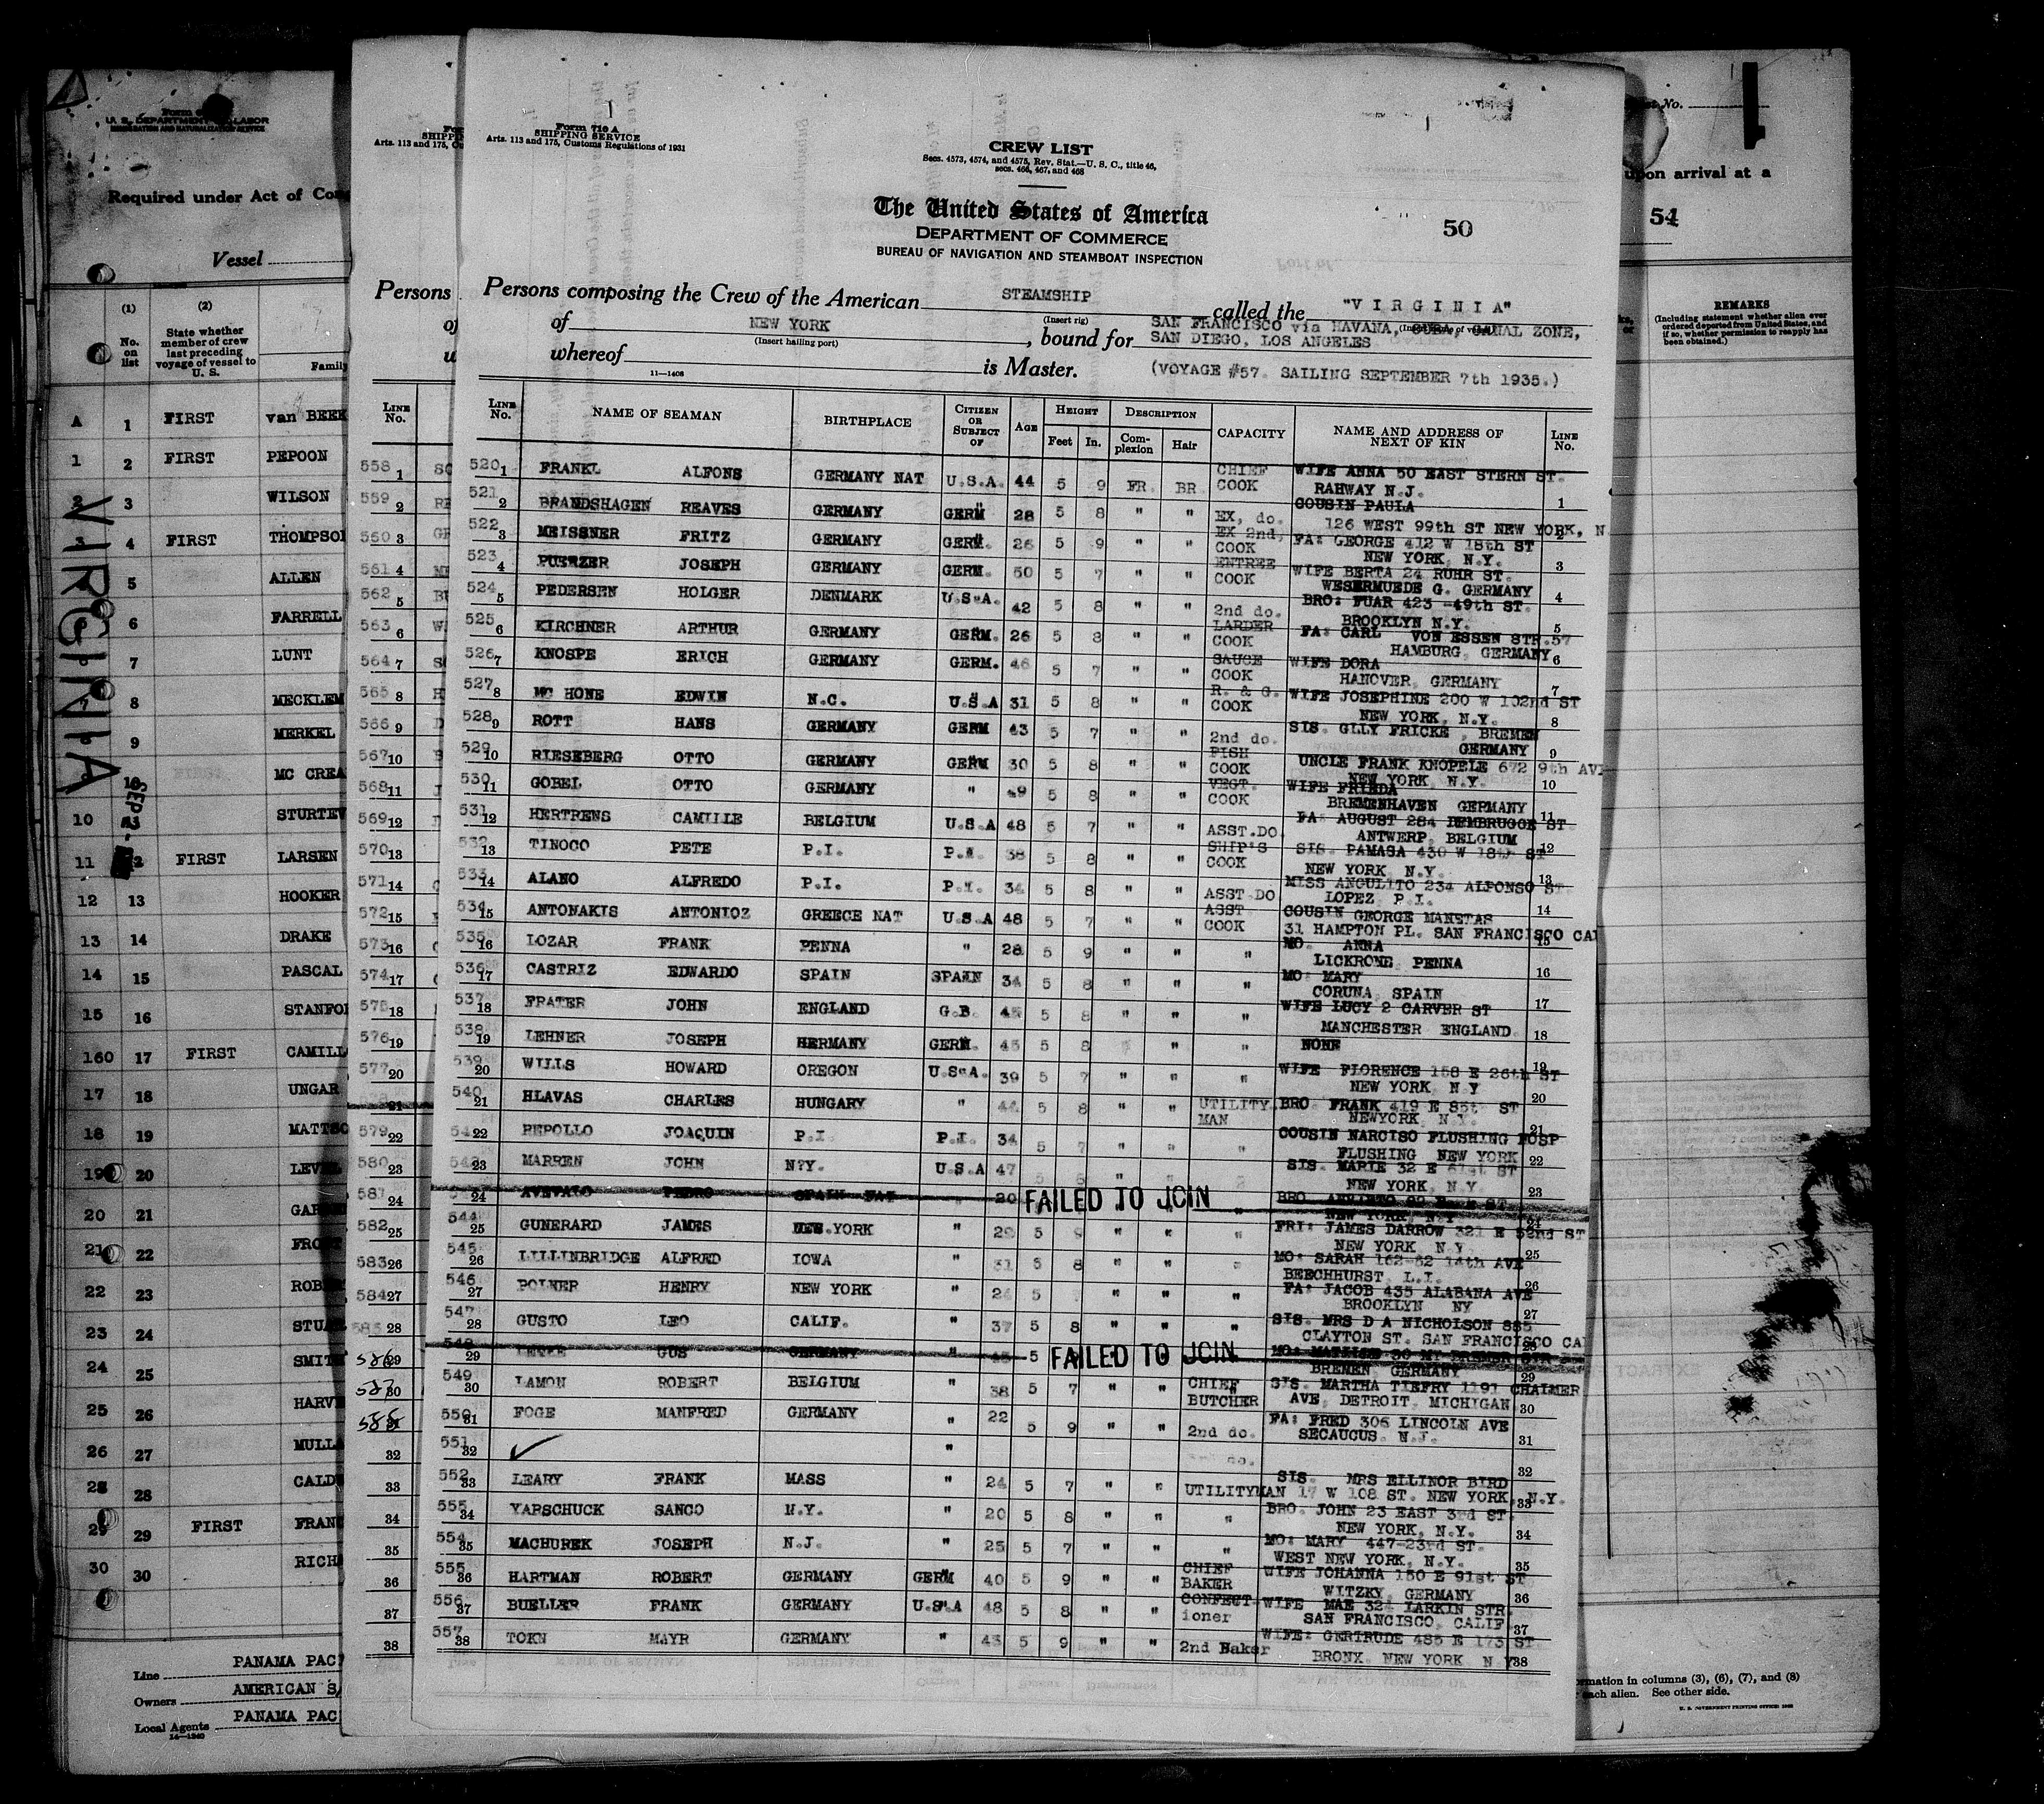 Form 710 A
SHIPPING SERVICE
Arts. 113 and 175, Customs Regulations of 1931
CREW LIST
Secs. 4573, 4574, and 4575, Rev. Stat.—U. S. C., title 46,
secs. 466, 467, and 468
The United States of America
DEPARTMENT OF COMMERCE
BUREAU OF NAVIGATION AND STEAMBOAT INSPECTION
50
Persons composing the Crew of the American STEAMSHIP called the "VIRGINIA"
(Insert rig)
of NEW YORK, bound for SAN FRANCISCO via HAVANA, CANAL ZONE,
(Insert hailing port) SAN DIEGO, LOS ANGELES
whereof is Master. (VOYAGE #57. SAILING SEPTEMBER 7th 1935.)
11—1408
LINE No. NAME OF SEAMAN BIRTHPLACE CITIZEN OR SUBJECT OF AGE HEIGHT Feet In. DESCRIPTION Complexion Hair CAPACITY NAME AND ADDRESS OF NEXT OF KIN LINE No.
520 1 FRANKL ALFONS GERMANY NAT U.S.A. 44 5 9 FR. BR. CHIEF COOK WIFE ANNA 50 EAST STERN ST. RAHWAY N.J. 1
521 2 BRANDSHAGEN REAVES GERMANY GERM 28 5 8 " " EX, do. COUSIN PAULA 126 WEST 99th ST NEW YORK, N. 2
522 3 MEISSNER FRITZ GERMANY GERM. 26 5 9 " " EX 2nd, COOK FA: GEORGE 412 W 18th ST NEW YORK, N.Y. 3
523 4 PUERZER JOSEPH GERMANY GERM. 50 5 7 " " ENTREE COOK WIFE BERTA 24 RUHR ST. WESERMUEDE G. GERMANY 4
524 5 PEDERSEN HOLGER DENMARK U.S.A. 42 5 8 " " 2nd do. BRO: FUAR 423 -49th ST. BROOKLYN N.Y. 5
525 6 KIRCHNER ARTHUR GERMANY GERM. 26 5 8 " " LARDER COOK FA: CARL VON ESSEN STR.57 HAMBURG, GERMANY 6
526 7 KNOSPE ERICH GERMANY GERM. 46 5 7 " " SAUCE COOK WIFE DORA HANOVER, GERMANY 7
527 8 MC HONE EDWIN N.C. U.S.A 31 5 8 " " R. & G. COOK WIFE JOSEPHINE 200 W 102nd ST NEW YORK, N.Y. 8
528 9 ROTT HANS GERMANY GERM 43 5 7 " " 2nd do. SIS. GLLY FRICKE, BREMEN GERMANY 9
529 10 RIESEBERG OTTO GERMANY GERM 30 5 8 " " FISH COOK UNCLE FRANK KNOPELE 672 9th AVE NEW YORK, N.Y. 10
530 11 GOBEL OTTO GERMANY " 49 5 8 " " VEGT. COOK WIFE FRIEDA BREMENHAVEN GERMANY 11
531 12 HERTRENS CAMILLE BELGIUM U.S.A 48 5 7 " " ASST.DO FA AUGUST 284 ST. ANTWERP, BELGIUM 12
532 13 TINOCO PETE P.I. P.I. 38 5 8 " " SHIP'S COOK SIS. PAMASA 430 W 18th ST NEW YORK, N.Y. 13
533 14 ALANO ALFREDO P.I. P.I. 34 5 8 " " ASST.DO MISS ANGULITO 234 ALFONSO ST. LOPEZ P.I. 14
534 15 ANTONAKIS ANTONIOZ GREECE NAT U.S.A 48 5 7 " " ASST COOK COUSIN GEORGE MANETAS 31 HAMPTON PL. SAN FRANCISCO CAL 15
535 16 LOZAR FRANK PENNA " 28 5 9 " " " MO. ANNA LICKRONE, PENNA 16
536 17 CASTRIZ EDWARDO SPAIN SPAIN 34 5 8 " " " MO: MARY CORUNA, SPAIN 17
537 18 FRATER JOHN ENGLAND G.B. 45 5 8 " " " WIFE LUCY 2 CARVER ST MANCHESTER ENGLAND. 18
538 19 LEHNER JOSEPH HERMANY GERM. 45 5 8 " " NONE 19
539 20 WILLS HOWARD OREGON U.S.A. 39 5 7 " " " WIFE FLORENCE 158 E 26th ST NEW YORK, N Y 20
540 21 HLAVAS CHARLES HUNGARY " 44 5 8 " " UTILITY MAN BRO. FRANK 419 E 85th ST NEWYORK, N.Y. 21
22 REPOLLO JOAQUIN P.I. P.I. 34 5 7 " " " COUSIN NARCISO FLUSHING HOSP FLUSHING NEW YORK 22
23 MARREN JOHN N.Y. U.S.A 47 SIS. MARIE 32 E 61st ST NEW YORK, N.Y. 23
24 AVEVALO PEDRO SPAIN NAT 20 FAILED TO JOIN NEW YORK, N.Y. 24
544 25 GUNERARD JAMES NEW.YORK " 29 5 " " " FRI: JAMES DARROW 321 E 52nd ST NEW YORK, N.Y. 25
545 26 LILLINBRIDGE ALFRED IOWA " 31 5 8 " " " MO: SARAH 162-62 14th AVE BEECHHURST, L.I. 26
546 27 POLNER HENRY NEW YORK " 24 5 " " " FA: JACOB 435 ALABANA AVE BROOKLYN NY 27
547 28 GUSTO LEO CALIF. " 37 5 8 " " " SIS. MRS D A NICHOLSON 885 CLAYTON ST. SAN FRANCISCO CAL 28
548 29 GUS GERMANY " 5 FAILED TO JOIN BREMEN, GERMANY 29
549 30 LAMON ROBERT BELGIUM " 38 5 7 " " CHIEF BUTCHER SIS. MARTHA TIEFRY 1191 CHALMER AVE, DETROIT, MICHIGAN 30
550 31 FOGE MANFRED GERMANY " 22 5 9 " " 2nd do. FA: FRED 306 LINCOLN AVE SECAUCUS. N.J. 31
551 32 " do. 32
552 33 LEARY FRANK MASS " 24 5 7 " " UTILITYMAN SIS. MRS ELLINOR BIRD 17 W 108 ST. NEW YORK, N.Y. 33
555 34 YAPSCHUCK SANCO N.Y. " 20 5 8 " " " BRO. JOHN 23 EAST 3rd ST. NEW YORK, N.Y. 34
554 35 MACHUREK JOSEPH N.J. " 25 5 7 " " " MO: MARY 447-23rd ST. WEST NEW YORK, N.Y. 35
555 36 HARTMAN ROBERT GERMANY GERM 40 5 9 " " CHIEF BAKER WIFE JOHANNA 150 E 91st ST WITZKY, GERMANY 36
556 37 BUELLER FRANK GERMANY U.S.A 48 5 8 " " CONFECT ioner WIFE MAE 324 LARKIN STR. SAN FRANCISCO, CALIF 37
557 38 TOKN MAYR GERMANY " 45 5 9 " " 2nd Baker WIFE: GERTRUDE 485 E 173 ST BRONX. NEW YORK N.Y 38
U. S. DEPARTMENT OF LABOR
IMMIGRATION AND NATURALIZATION SERVICE
Required under Act of
Vessel
(1) No. on list
(2) State whether member of crew last preceding voyage of vessel to U. S.
Family
A 1 FIRST van BEEK
1 2 FIRST PEPOON
2 3 WILSON
3 4 FIRST THOMPSON
5 ALLEN
6 FARRELL
7 LUNT
8 MECKLEM
9 MERKEL
MC CREA
10 STURTEV
11 FIRST LARSEN
12 13 HOOKER
13 14 DRAKE
14 15 PASCAL
15 16 STANFO
160 17 FIRST CAMILL
17 18 UNGAR
18 19 MATTSO
19 20 LEVE
20 21
21 22
22 23 ROBE
23 24 STUA
24 25 SMIT
25 26 HARV
26 27 MULLA
28 28 CALD
29 29 FIRST FRAN
30 30 RICH
VIRGINIA
Line PANAMA PAC
Owners AMERICAN S
Local Agents PANAMA PAC
14—1240
SHIPP
Arts. 113 and 175, Cu
Persons
of
LINE No.
558 1
559 2
560 3
561 4
562 5
563 6
564 7
565 8
566 9
567 10
568 11
569 12
570 13
571 14
572 15
573 16
574 17
575 18
576 19
577 20
21
579 22
580 23
581 24
582 25
583 26
584 27
585 28
586 29
587 30
588 31
32
33
34
35
36
37
38
No.
upon arrival at a
54
REMARKS
(Including statement whether alien ever
ordered deported from United States, and
if so, whether permission to reapply has
been obtained.)
ormation in columns (3), (6), (7), and (8)
each alien. See other side.
U. S. GOVERNMENT PRINTING OFFICE